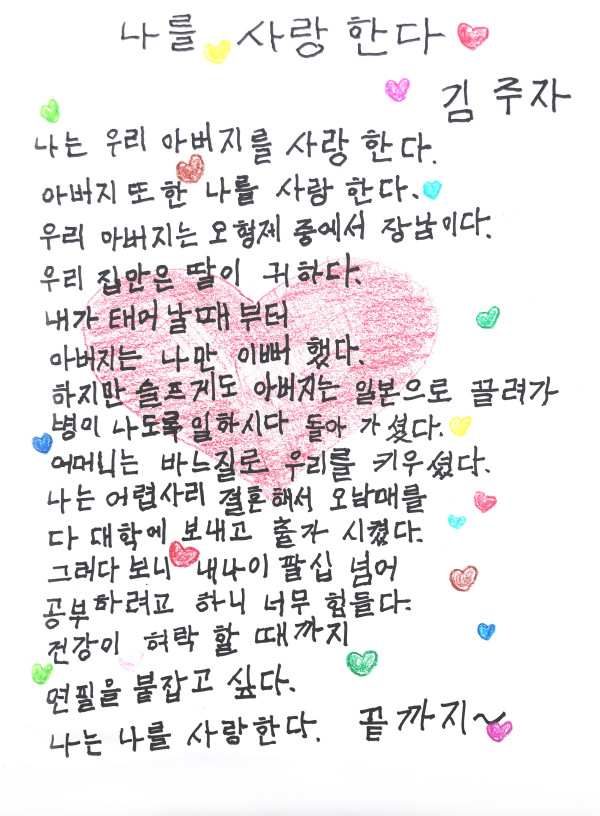 나를 사랑 한다
김 주자
나는 우리 아버지를 사랑 한다.
아버지 또 한 나를 사랑 한다.
우리 아버지는 오형제 중에서 장남이다.
우리 집안은 딸이 귀하다.
내가 태어 날때 부터
아버지는 나만 이뻐 했다.
하지만 슬프게도 아버지는 일본으로 끌려가
병이 나도록 일하시다 돌아 가 셨다.
어머니는 바느질로 우리를 키우 셨다.
나는 어렵사리 결혼해서 오남매를
다 대학에 보내고 출가 시켰다.
그러다 보니 내나이 팔십 넘어
공부하려고 하니 너무 힘들다.
건강이 허락 할 때까지
연필을 붙잡고 싶다.
나는 나를 사랑한다. 끝까지~